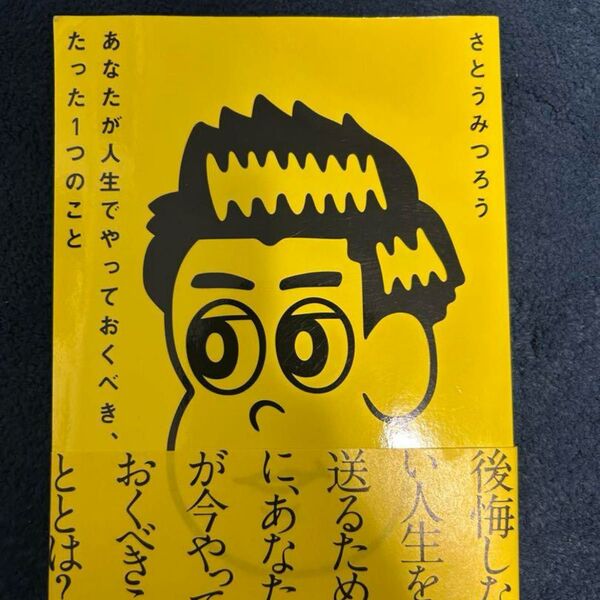 さとうみつろう
あなたが人生でやっておくべき、
たった1つのこと
後悔した
い人生を
送るため
に、あなた
が今やって
おくべきこ
ととは?